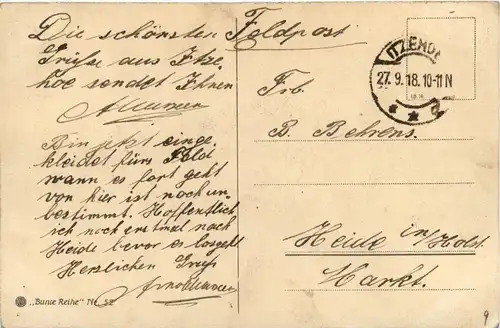 Die schönsten
Grüße aus Itze-
hoe sendet Ihnen
Bin jetzt einge-
kleidet fürs Feld
wann es fort geht
von hier ist noch un-
bestimmt. Hoffentlich
ich noch erstmal nach
Heide bevor es losgeht
Herzlichen Gruß
"Bunte Reihe" Nr. 52
Feldpost
ITZEHOE
27.9.18.10-11N
* * a
Frl.
B. Behrens.
Heide in/Holst.
Markt.
9